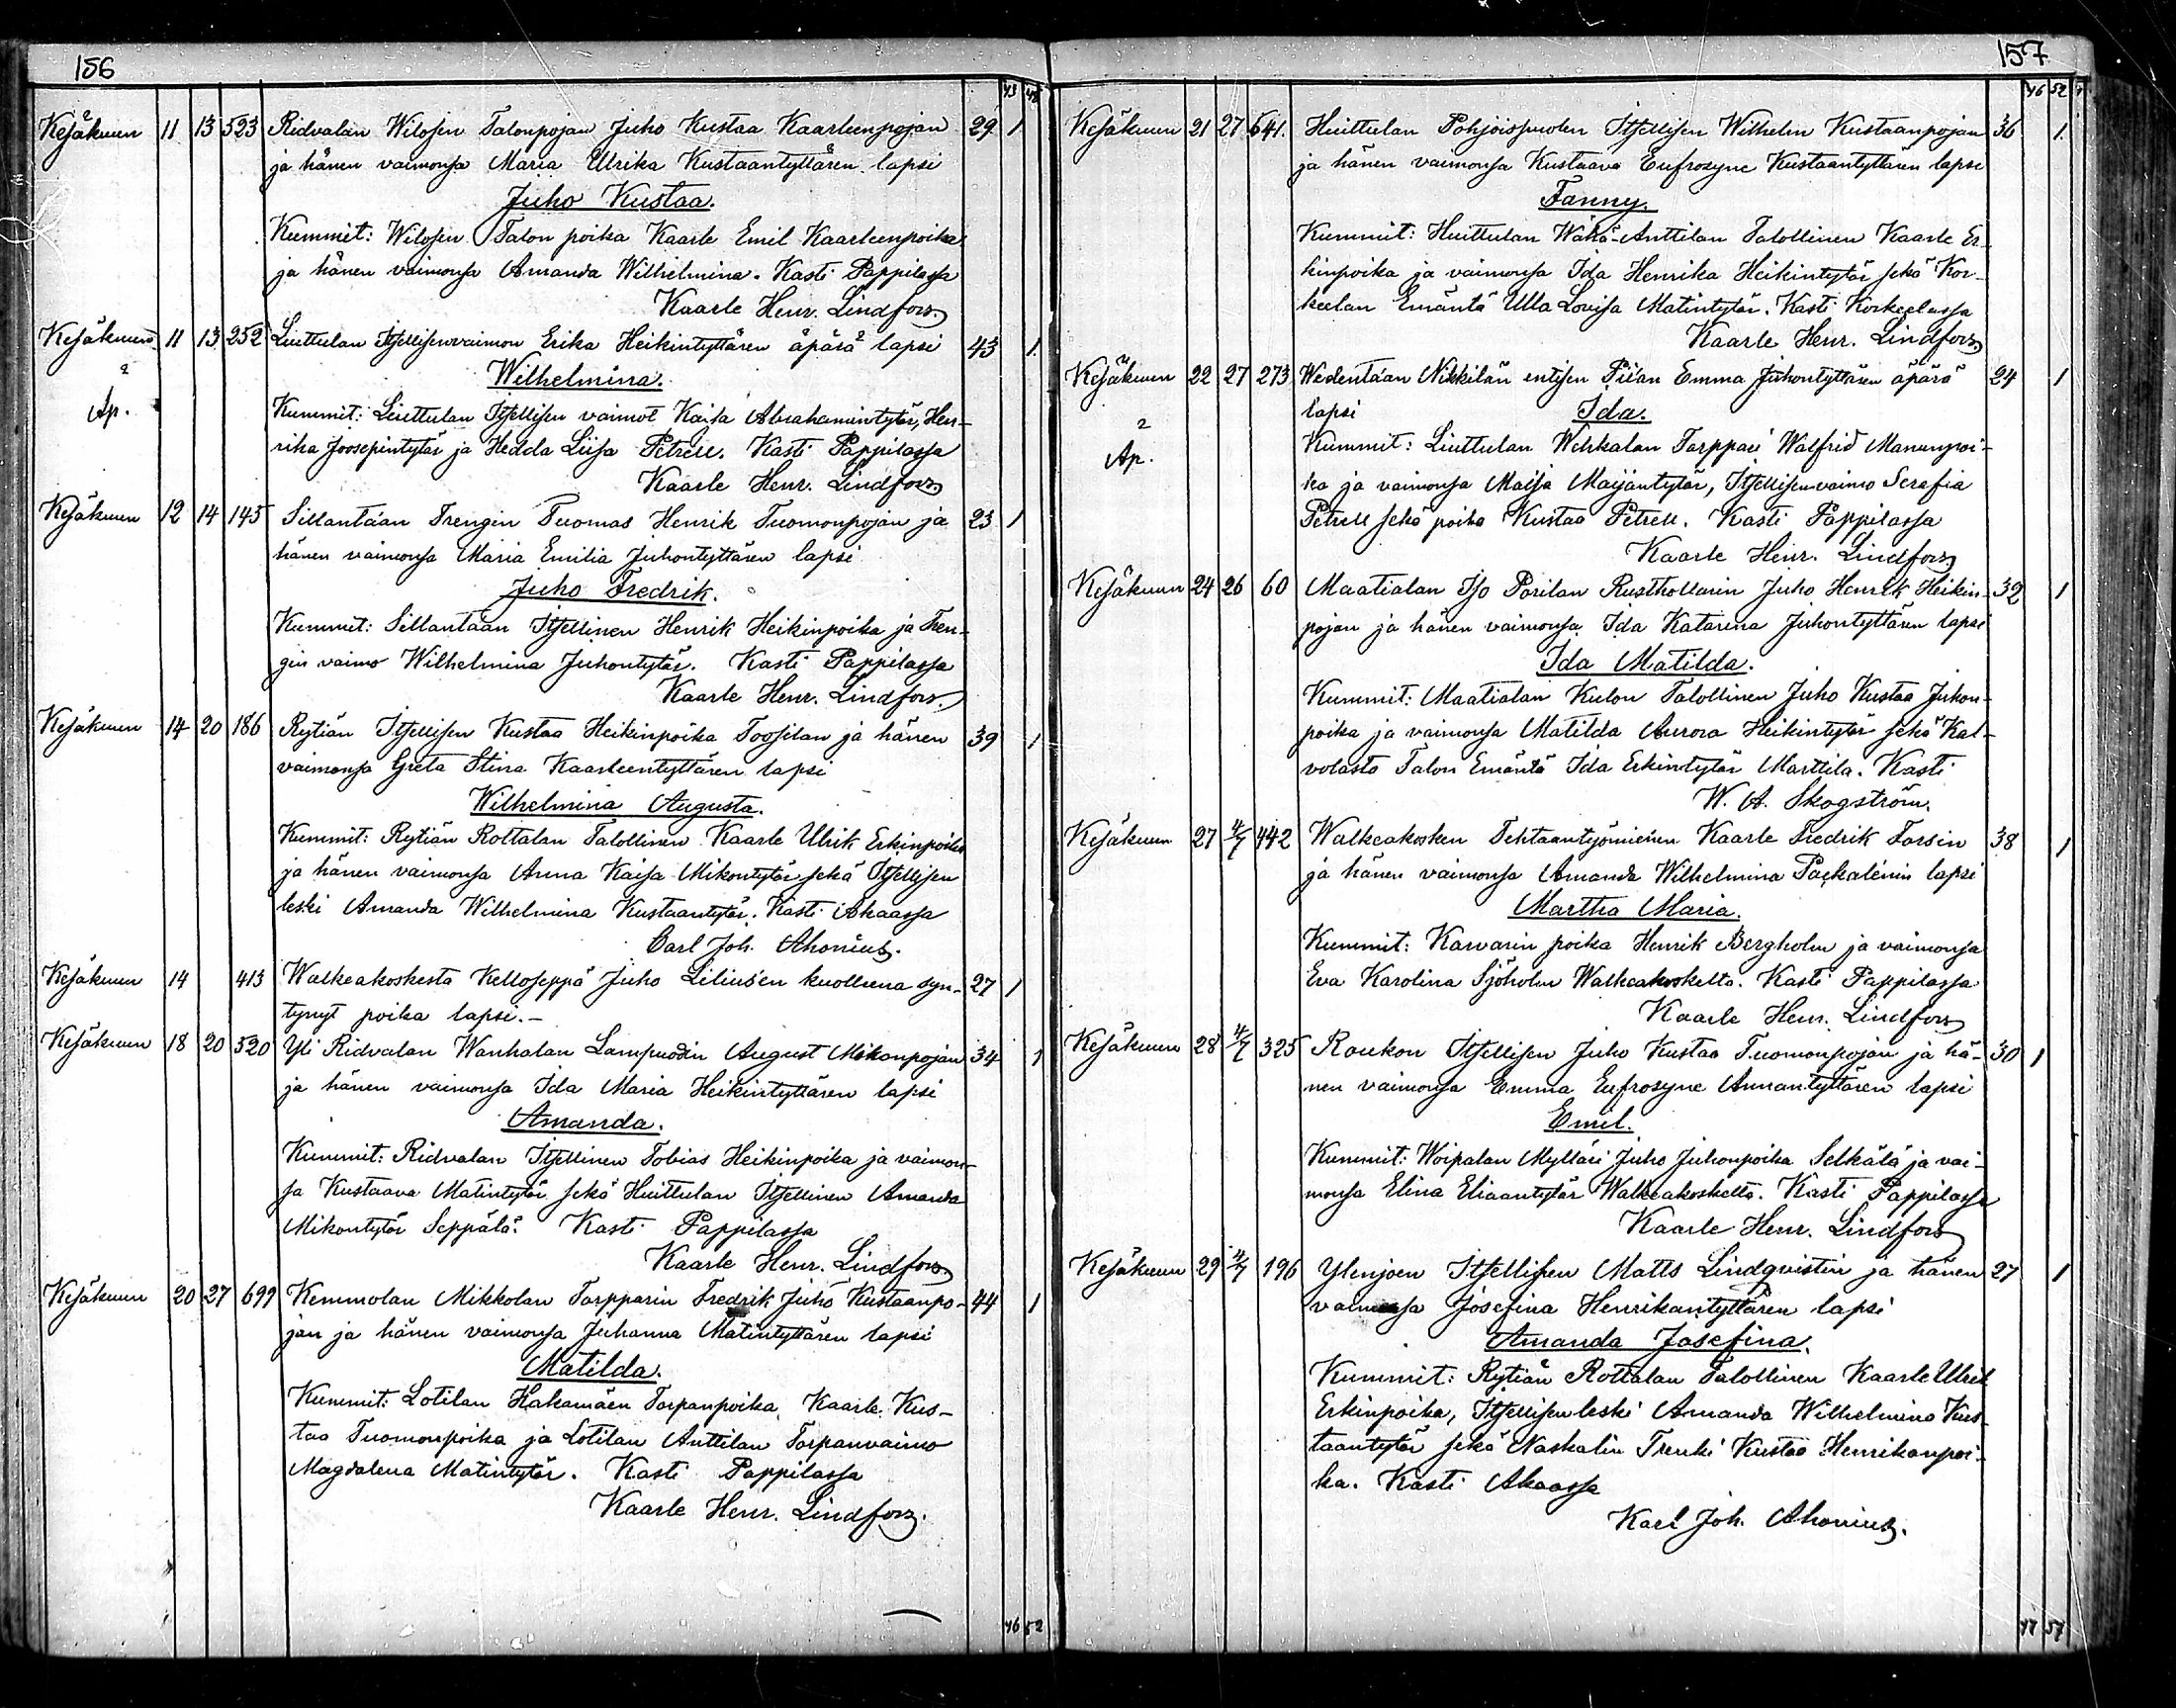 156
43 48
Kesäkuun 11 13 523 Ridvalan Wilosen Talonpojan Juho Kustaa Kaarleenpojan 29 1
ja hänen vaimonsa Maria Ulrika Kustaantyttären lapsi
Juho Kustaa.
Kummit: Wilosen Talon poika Kaarle Emil Kaarleenpoika
ja hänen vaimonsa Amanda Wilhelmina. Kasti Pappilassa
Kaarle Henr. Lindfors.
Kesäkuun 11 13 252 Liuttulan Itsellisenvaimon Erika Heikintyttären äpärä lapsi 43 1.
Wilhelmina.
Äp.
Kummit: Liuttulan Itsellisen vaimot Kaisa Abrahamintytär, Hen-
rika Joosepintytär ja Hedda Liisa Petrell. Kasti Pappilassa
Kaarle Henr. Lindfors
Kesäkuun 12 14 145 Sillantaan Trengin Tuomas Henrik Tuomonpojan ja 23 1
hänen vaimonsa Maria Emilia Juhontyttären lapsi
Juho Fredrik.
Kummit: Sillantaan Itsellinen Henrik Heikinpoika ja Tren-
gin vaimo Wilhelmina Juhontytär. Kasti Pappilassa
Kaarle Henr. Lindfors.
Kesäkuun 14 20 186 Rytiän Itsellisen Kustaa Heikinpoika Toosilan ja hänen 39 1
vaimonsa Greta Stina Kaarleentyttären lapsi
Wilhelmina Augusta.
Kummit: Rytiän Rottalan Talollinen Kaarle Ulrik Erkinpoika
ja hänen vaimonsa Anna Kaisa Mikontytär sekä Itsellisen
leski Amanda Wilhelmina Kustaantytär. Kasti Akaassa
Carl Joh. Ahonius.
Kesäkuun 14 413 Walkeakoskesta Kelloseppä Juho Lilius'en kuolleena syn- 27 1
tynyt poika lapsi.-
Kesäkuun 18 20 520 Yli Ridvalan Wanhalan Lampuodin August Mikonpojan 34 1
ja hänen vaimonsa Ida Maria Heikintyttären lapsi
Amanda.
Kummit: Ridvalan Itsellinen Tobias Heikinpoika ja vaimon-
sa Kustaava Matintytär sekä Huittulan Itsellinen Amanda
Mikontytär Seppälä. Kasti Pappilassa
Kaarle Henr. Lindfors
Kesäkuun 20 27 699 Kemmolan Mikkolan Torpparin Fredrik Juho Kustaanpo- 44 1
jan ja hänen vaimonsa Juhanna Matintyttären lapsi
Matilda.
Kummit: Lotilan Hakamäen Torpanpoika Kaarle Kus-
taa Tuomonpoika ja Lotilan Anttilan Torpanvaimo
Magdalena Matintytär. Kasti Pappilassa
Kaarle Henr. Lindfors.
46 52
157
46 52
Kesäkuun 21 27 641. Huittulan Pohjoispuolen Itsellisen Wilhelm Kustaanpojan 36 1.
ja hänen vaimonsa Kustaava Eufrosyne Kustaantyttären lapsi
Fanny.
Kummit: Huittulan Wähä-Anttilan Talollinen Kaarle Er-
kinpoika ja vaimonsa Ida Henrika Heikintytär sekä Kor-
keelan Emäntä Ulla Lovisa Matintytär. Kasti Korkeelassa
Kaarle Henr. Lindfors
Kesäkuun 22 27 273 Wedentaan Nikkilän entisen Piian Emma Juhontyttären äpärä 24 1
lapsi Ida.
Äp.
Kummit: Liuttulan Wehkalan Torppari Walfrid Manunpoi-
ka ja vaimonsa Maija Maijantytär, Itsellisenvaimo Serafia
Petrell sekä poika Kustaa Petrell. Kasti Pappilassa
Kaarle Henr. Lindfors
Kesäkuun 24 26 60 Maatialan Iso Porilan Rusthollarin Juho Henrik Heikin- 32 1
pojan ja hänen vaimonsa Ida Katarina Juhontyttären lapsi
Ida Matilda.
Kummit: Maatialan Kulon Talollinen Juho Kustaa Juhon-
poika ja vaimonsa Matilda Aurora Heikintytär sekä Kal-
volasta Talon Emäntä Ida Erkintytär Marttila. Kasti
W. A. Skogström.
Kesäkuun 27 4/7 442 Walkeakosken Tehtaantyömiehen Kaarle Fredrik Forsin 38 1
ja hänen vaimonsa Amanda Wilhelmina Packalenin lapsi
Martha Maria.
Kummit: Karvarin poika Henrik Bergholm ja vaimonsa
Eva Karolina Sjöholm Walkeakoskelta. Kasti Pappilassa
Kaarle Henr. Lindfors
Kesäkuun 28 4/7 325 Roukon Itsellisen Juho Kustaa Tuomonpojan ja hä- 30 1
nen vaimonsa Emma Eufrosyne Annantyttären lapsi
Emil.
Kummit: Woipalan Mylläri Juho Juhonpoika Selkälä ja vai-
monsa Elina Eliaantytär Walkeakoskelta. Kasti Pappilassa
Kaarle Henr. Lindfors
Kesäkuun 29 4/7 196 Ylenjoen Itsellisen Matts Lindqvistin ja hänen 27 1
vaimonsa Josefina Henrikantyttären lapsi
Amanda Josefina.
Kummit: Rytiän Rottalan Talollinen Kaarle Ulrik
Erkinpoika, Itsellisenleski Amanda Wilhelmina Kus-
taantytär sekä Naskalin Trenki Kustaa Henrikanpoi-
ka. Kasti Akaassa
Karl Joh. Ahonius.
47 57